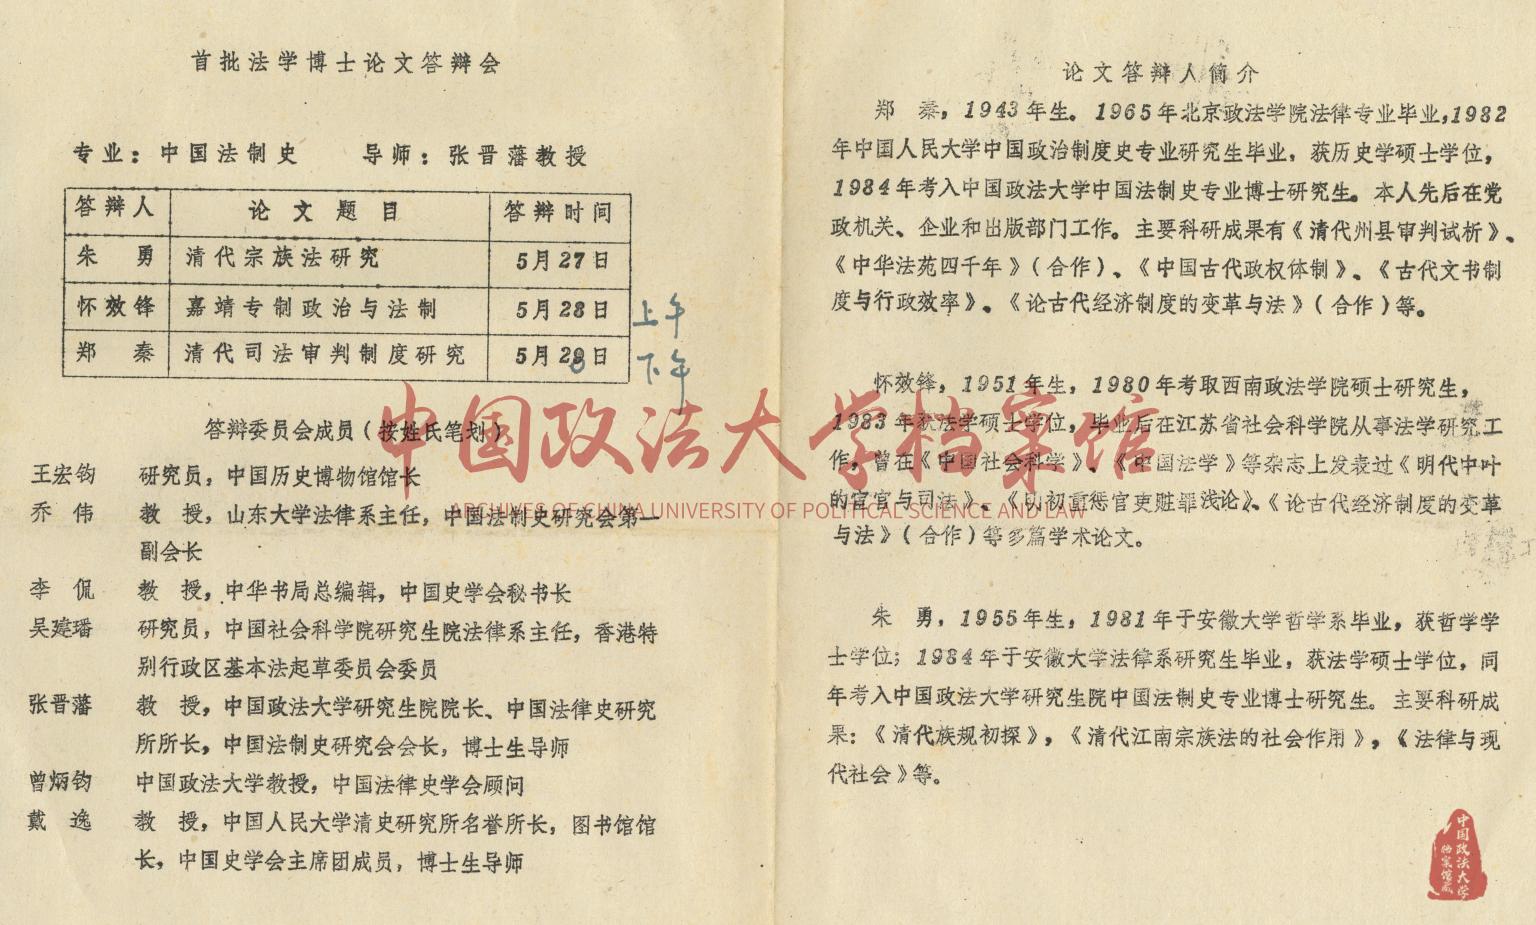 首批法学博士论文答辩会
专业：中国法制史 导师：张晋藩教授
答辩人 论文题目 答辩时间
朱 勇 清代宗族法研究 5月27日
怀效锋 嘉靖专制政治与法制 5月28日 上午
郑 秦 清代司法审判制度研究 5月28日 下午
答辩委员会成员（按姓氏笔划）
王宏钧 研究员，中国历史博物馆馆长
乔 伟 教 授，山东大学法律系主任，中国法制史研究会第一
副会长
李 侃 教 授，中华书局总编辑，中国史学会秘书长
吴建璠 研究员，中国社会科学院研究生院法律系主任，香港特
别行政区基本法起草委员会委员
张晋藩 教 授，中国政法大学研究生院院长、中国法律史研究
所所长，中国法制史研究会会长，博士生导师
曾炳钧 中国政法大学教授，中国法律史学会顾问
戴 逸 教 授，中国人民大学清史研究所名誉所长，图书馆馆
长，中国史学会主席团成员，博士生导师
论文答辩人简介
郑 秦，1943年生。1965年北京政法学院法律专业毕业，1982
年中国人民大学中国政治制度史专业研究生毕业，获历史学硕士学位，
1984年考入中国政法大学中国法制史专业博士研究生。本人先后在党
政机关、企业和出版部门工作。主要科研成果有《清代州县审判试析》、
《中华法苑四千年》（合作）、《中国古代政权体制》、《古代文书制
度与行政效率》、《论古代经济制度的变革与法》（合作）等。
怀效锋，1951年生，1980年考取西南政法学院硕士研究生，
1983年获法学硕士学位，毕业后在江苏省社会科学院从事法学研究工
作，曾在《中国社会科学》、《中国法学》等杂志上发表过《明代中叶
的宦官与司法》、《明初重惩官吏赃罪浅论》、《论古代经济制度的变革
与法》（合作）等多篇学术论文。
朱 勇，1955年生，1981年于安徽大学哲学系毕业，获哲学学
士学位；1984年于安徽大学法律系研究生毕业，获法学硕士学位，同
年考入中国政法大学研究生院中国法制史专业博士研究生。主要科研成
果：《清代族规初探》，《清代江南宗族法的社会作用》，《法律与现
代社会》等。
中国政法大学档案馆
ARCHIVES OF CHINA UNIVERSITY OF POLITICAL SCIENCE AND LAW
中国政法大学
档案馆藏